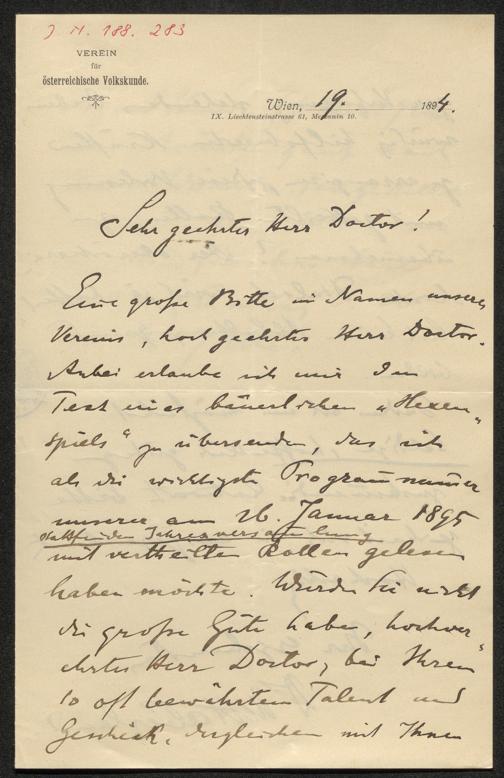 J. N. 188. 283
VEREIN
für
österreichische Volkskunde.
Wien, 19. 1894.
IX. Liechtensteinstrasse 61, Mezzanin 10.
Sehr geehrter Herr Doctor!
Eine große Bitte im Namen unseres
Vereins, hochgeehrter Herr Doctor.
Anbei erlaube ich mir den
Text eines bäuerlichen „Hexen-
spiels“ zu übersenden, das ich
als die wichtigste Programmnummer
unserer am 26. Januar 1895
stattfindenden Jahresversammlung
mit vertheilten Rollen gelesen
haben möchte. Würden Sie nicht
die große Güte haben, hochver-
ehrter Herr Doctor, bei Ihrem
so oft bewährten Talent und
Geschick, dergleichen mit Ihnen